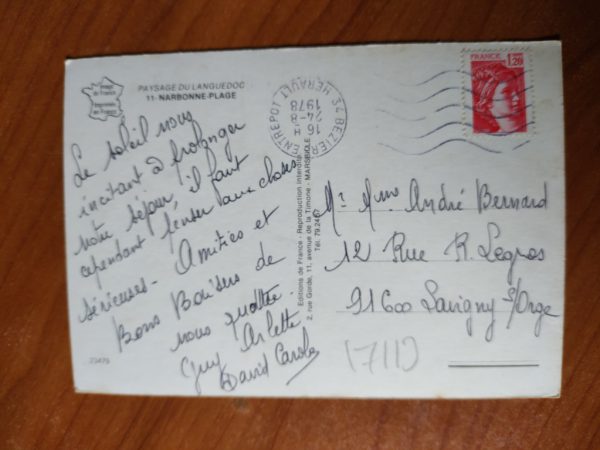 PAYSAGE DU LANGUEDOC
11 - NARBONNE-PLAGE
Le soleil nous
incitant à prolonger
notre séjour, il faut
cependant penser aux choses
sérieuses - Amitiés et
Bons Baisers de
nous quatre.
Guy Arlette
David Carole
23475
Editions de France - Reproduction interdite
2, rue Gorde, 11, avenue de la Timone - MARSEILLE
34 BEZIERS ENTREPOT HERAULT
16 H
24-8
1978
FRANCE
1,20
Mr Mme André Bernard
12 Rue R. Legros
91600 Savigny s/Orge